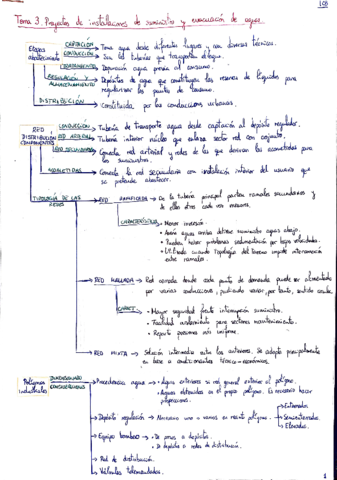 Tema 3. Proyectos de instalaciones de suministro y evacuación de agua.
Etapas abastecimiento
CAPTACIÓN → Toma agua desde diferentes lugares y con diversas técnicas.
CONDUCCIÓN → Son las tuberías que transportan el agua.
TRATAMIENTO → Depuración agua previa al consumo.
REGULACIÓN Y ALMACENAMIENTO → Depósitos de agua que constituyen las reservas de líquidos para
regularizar los puntos de consumo.
DISTRIBUCIÓN → Constituida por las conducciones urbanas.
RED DISTRIBUCIÓN COMPONENTES
CONDUCCIÓN → Tubería de transporte agua desde captación al depósito regulador.
RED ARTERIAL → Tubería interior núcleo que enlaza sector red con conjunto.
RED SECUNDARIA → Conecta red arterial y redes de las que derivan las acometidas para
los suministros.
ACOMETIDAS → Conecta la red secundaria con instalación interior del usuario que
se pretende abastecer.
TIPOLOGÍA DE LAS REDES
→ RED RAMIFICADA → De la tubería principal parten ramales secundarios y
de ellos otros cada vez menores.
CARACTERÍSTICAS → • Menor inversión.
• Avería aguas arriba detiene suministro aguas abajo.
• Pueden haber problemas sedimentación por bajas velocidades.
• Utilizada cuando topografía del terreno impide interconexión
entre ramales.
→ RED MALLADA → Red cerrada donde cada punto de demanda puede ser alimentado
por varias conducciones, pudiendo variar, por tanto, sentido
CARACT. → • Mayor seguridad frente interrupción suministro.
• Facilidad aislamiento para sectores mantenimiento.
• Reparto presiones más uniforme.
→ RED MIXTA → Solución intermedia entre las anteriores. Se adopta principalmente
en base a condicionantes técnico-económicos.
Polígonos industriales
→ Procedencia agua → • Agua exterior si red general exterior al polígono.
• Aguas obtenidas en el propio polígono. Es necesario hacer
→ Depósito regulación → Necesario uno o varios en recinto polígono.
→ Enterrados
→ Semienterrados
→ Elevados
→ Equipo bombeo → • De pozos a depósitos.
• De depósito a redes de distribución.
→ Red de distribución.
→ Válvulas telemandadas.